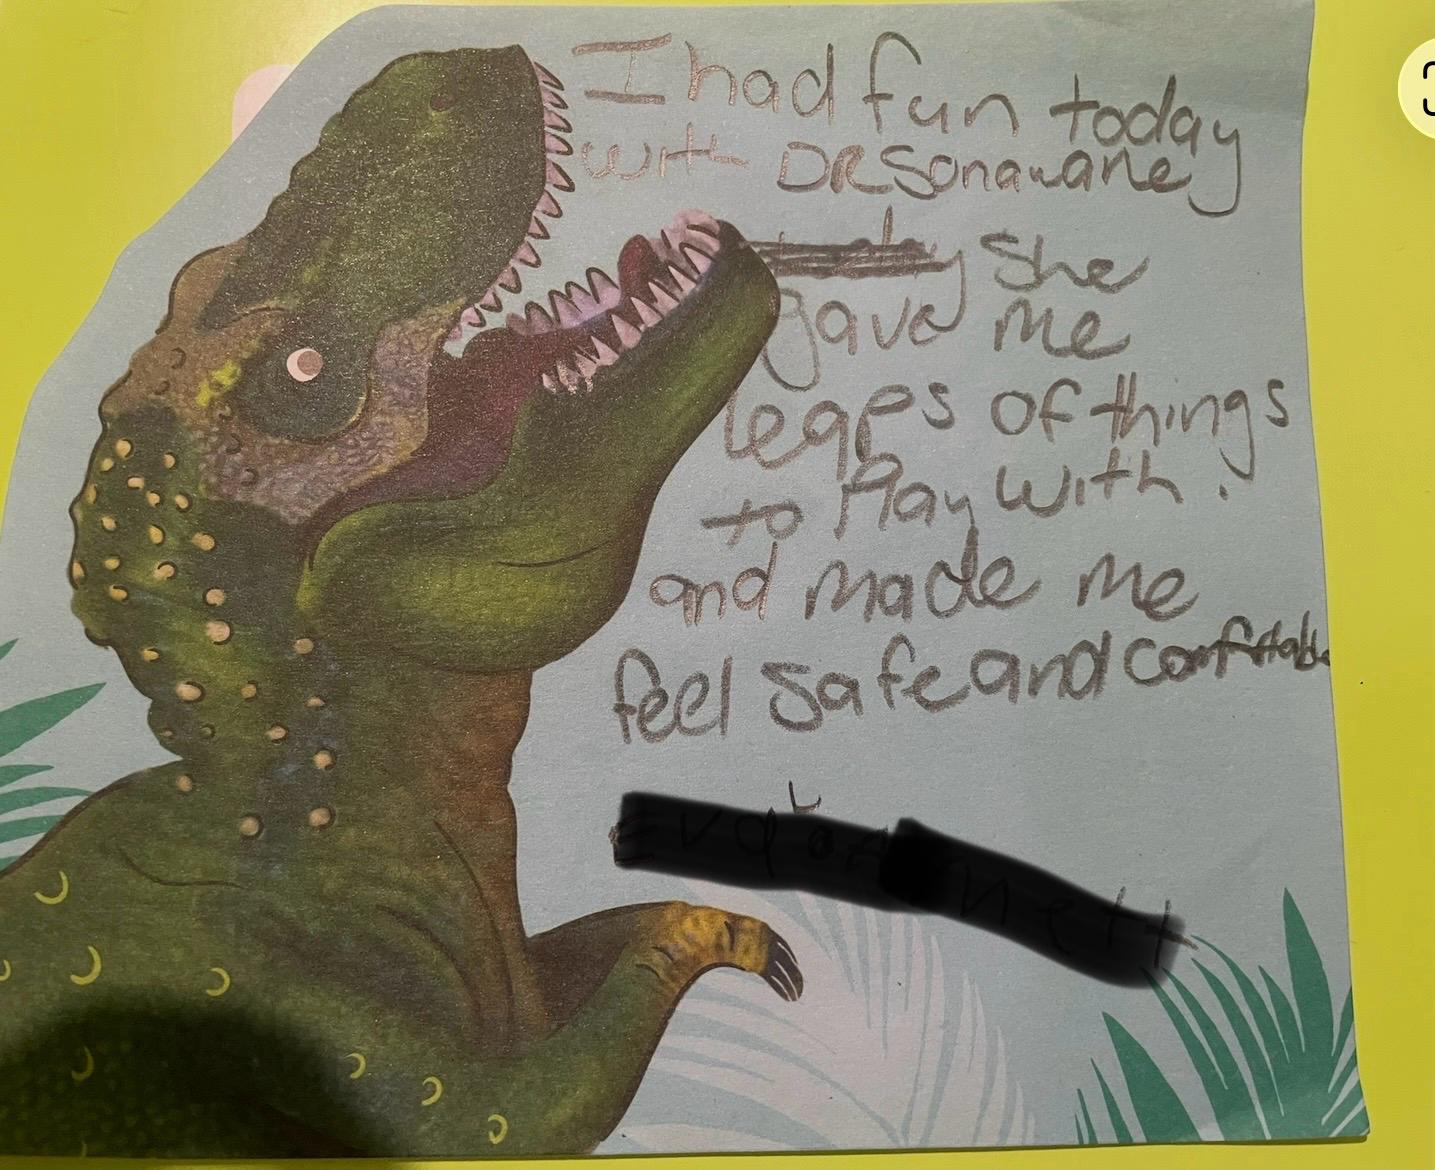 I had fun today
with DR Sonawane
She
gave me
leaps of things
to Play with.
and made me
feel safe and comfrtable